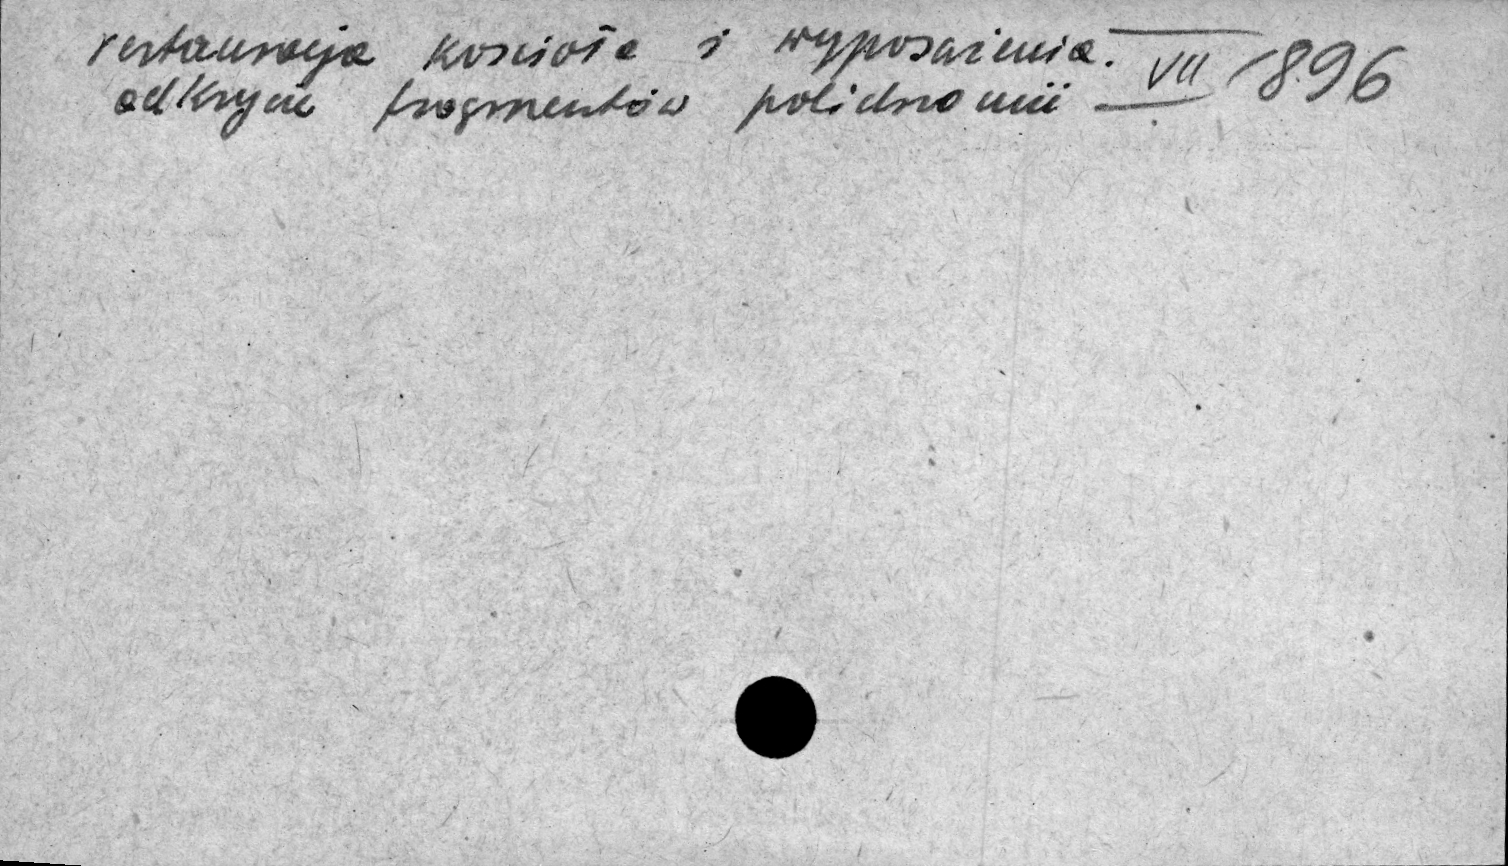 restauracja kościoła i wyposażenia. VII 1896
odkrycie fragmentów polichromii